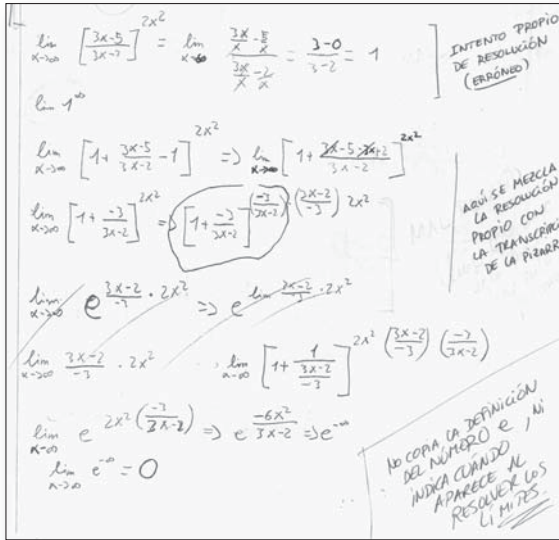 lim x→∞ [3x-5 / 3x-2]^2x² = lim x→∞ (3x/x - 5/x) / (3x/x - 2/x) = (3-0)/(3-2) = 1
INTENTO PROPIO
DE RESOLUCIÓN
(ERRÓNEO)
lim 1^∞
lim x→∞ [1 + 3x-5/3x-2 - 1]^2x² => lim x→∞ [1 + 3x-5-3x+2 / 3x-2]^2x²
lim x→∞ [1 + -3/3x-2]^2x² => [1 + -3/3x-2]^(-3/3x-2)·(3x-2/-3) 2x²
AQUÍ SE MEZCLA
LA RESOLUCIÓN
PROPIO CON
LA TRANSCRIPCIÓN
DE LA PIZARRA
lim x→∞ e^(3x-2/-3 · 2x²) => e^(lim 3x-2/-3 · 2x²)
lim x→∞ 3x-2/-3 · 2x² lim x→∞ [1 + 1/(3x-2/-3)]^2x² (3x-2/-3) (-3/3x-2)
lim x→∞ e^2x²(-3/3x-2) => e^(-6x²/3x-2) => e^-∞
lim x→∞ e^-∞ = 0
NO COPIA LA DEFINICIÓN
DEL NÚMERO e, NI
INDICA CUÁNDO
APARECE AL
RESOLVER LOS
LÍMITES.